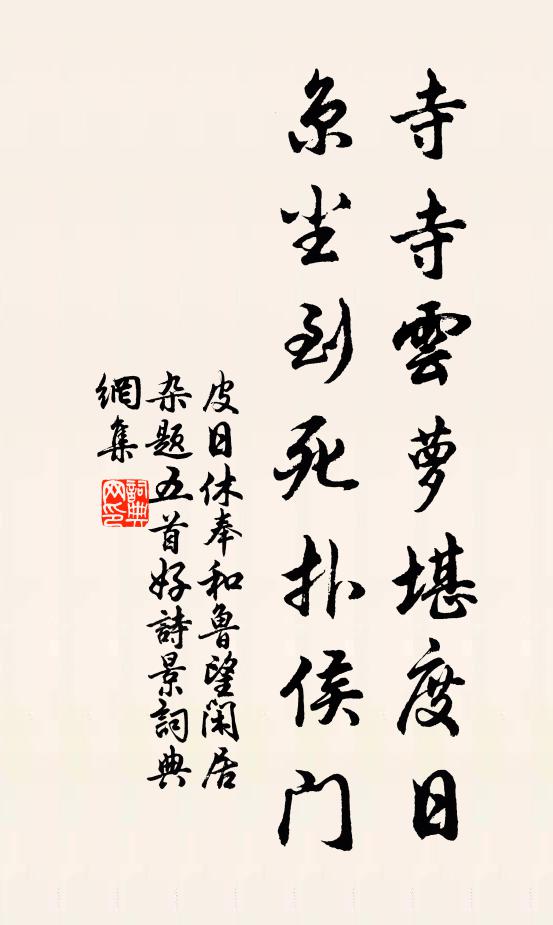 寺寺雲夢堪度日
京尘到死扑侯门
皮日休奉和鲁望闲居
杂题五首好詩景詞典
網集
詞典网印